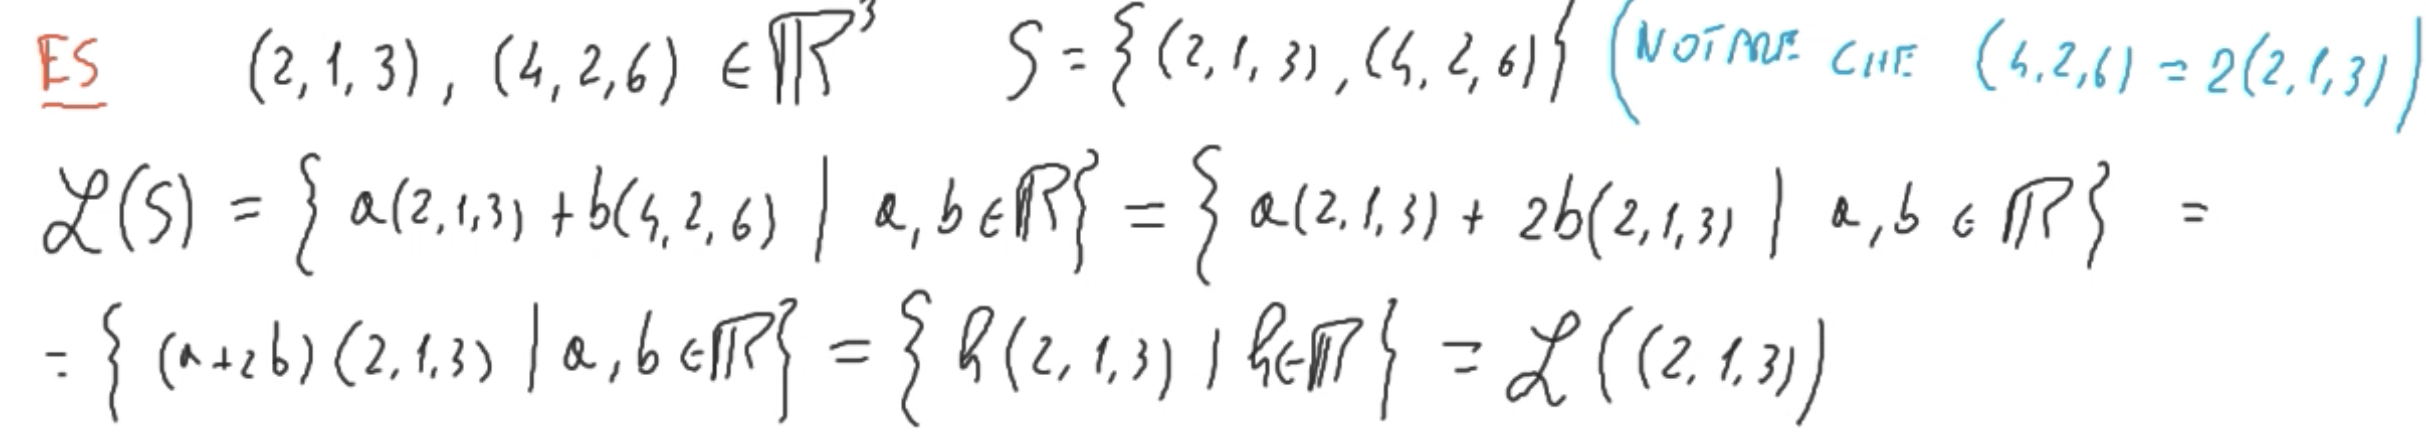 ES (2,1,3), (4,2,6) ∈ ℝ³ S = {(2,1,3), (4,2,6)} (NOTARE CHE (4,2,6) = 2(2,1,3))
ℒ(S) = { a(2,1,3) + b(4,2,6) | a, b ∈ ℝ } = { a(2,1,3) + 2b(2,1,3) | a, b ∈ ℝ } =
= { (a+2b)(2,1,3) | a, b ∈ ℝ } = { h(2,1,3) | h ∈ ℝ } = ℒ((2,1,3)